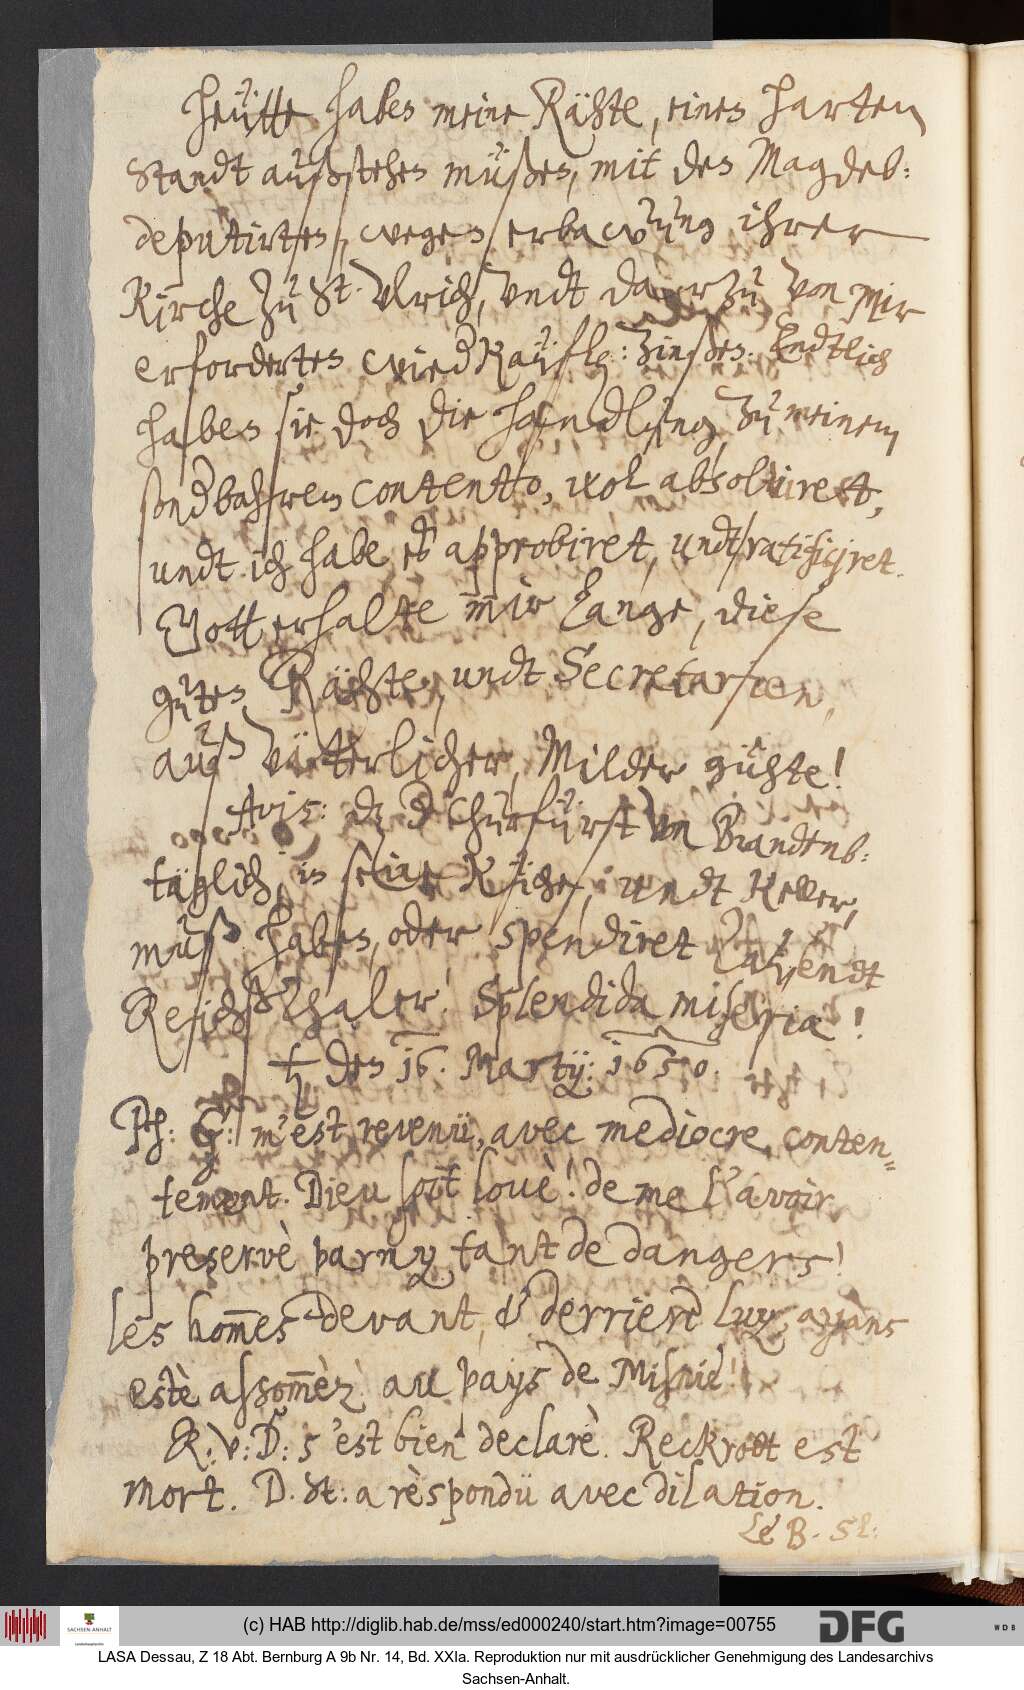 Heütte haben meine Rähte, einen harten
Standt außstehen müßen, mit den Magdeb:
deputirten, wegen erbawung ihrer
Kirche zu St. Vlrich, vndt darzu von Mir
erforderten wiedKaüfl: zinßen. Endtlich
haben sie doch die handlung zu meinem
sondbahrem contento, wol absolviret,
undt ich habe es approbiret, undt ratificjret.
Gott erhalte mir lange, diese
guten Rähte, undt Secretarien,
auß Väterlicher, Milder gühte!
Avis: dz der Churfürst von Brandtnb:
täglich, in seine Küche, undt Keller,
muß haben, oder spendiret Tausendt
Reichsthaler! Splendida miseria!
♄ den 16. Martij: 1650.
Ph: G: m'est revenü, avec mediocre conten-
tement. Dieu soit louè! de me l'avoir
preservè parmy tant de dangers!
les hom̅es devant, & derriere luy, ayans
estè assom̅èz au pays de Misnie!
R: v: D: s'est bien declarè. Reckrott est
mort. D. St: a rèspondü avec dilation.
Le B. St:
(c) HAB http://diglib.hab.de/mss/ed000240/start.htm?image=00755
SACHSEN-ANHALT
DFG
WDB
LASA Dessau, Z 18 Abt. Bernburg A 9b Nr. 14, Bd. XXIa. Reproduktion nur mit ausdrücklicher Genehmigung des Landesarchivs
Sachsen-Anhalt.